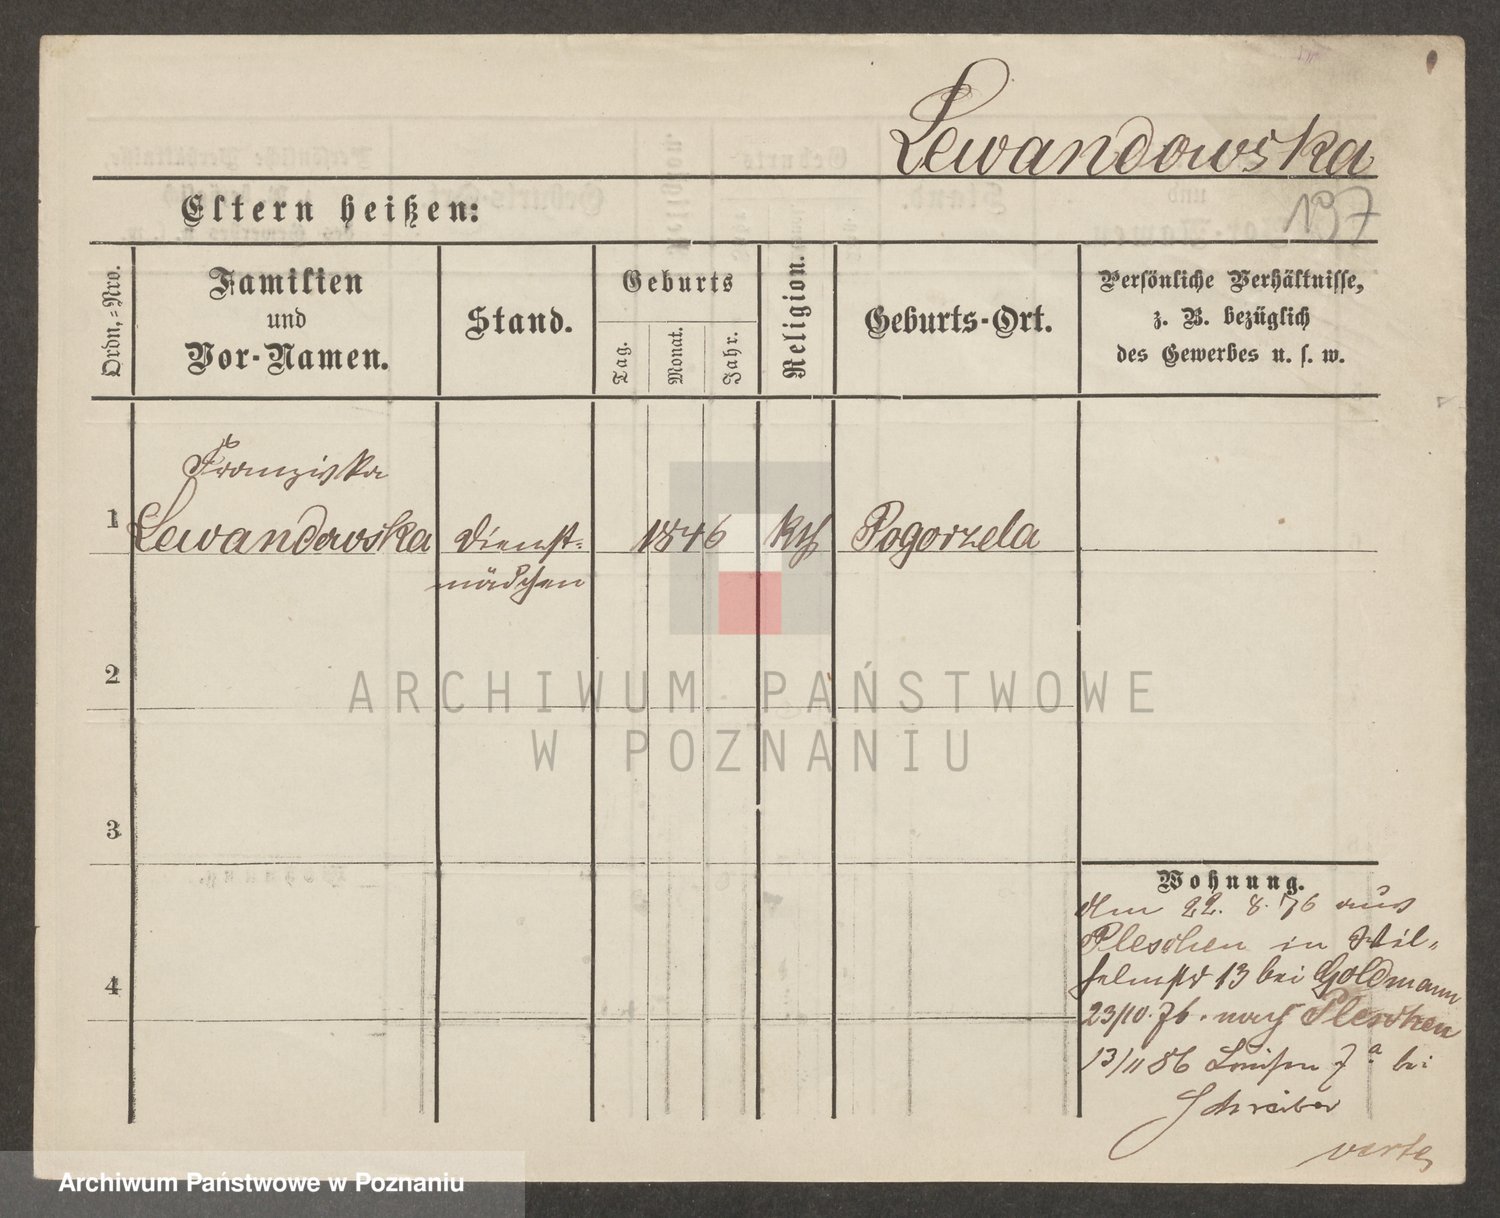 Lewandowska
197
Eltern heißen:
Ordn.-Nro.
Familien
und
Vor-Namen.
Stand.
Geburts
Tag.
Monat.
Jahr.
Religion.
Geburts-Ort.
Persönliche Verhältnisse,
z. B. bezüglich
des Gewerbes u. s. w.
Franziska
1 Lewandowska Dienst- 1846 kth Pogorzela
mädchen
2
3
4
Wohnung.
Am 22. 8. 76 aus
Pleschen in Wil-
helmstr 13 bei Goldmann
23/10. 76. nach Pleschen
13/11 86 Louisen 7a bei
Schreiber
verte
ARCHIWUM PAŃSTWOWE
W POZNANIU
Archiwum Państwowe w Poznaniu